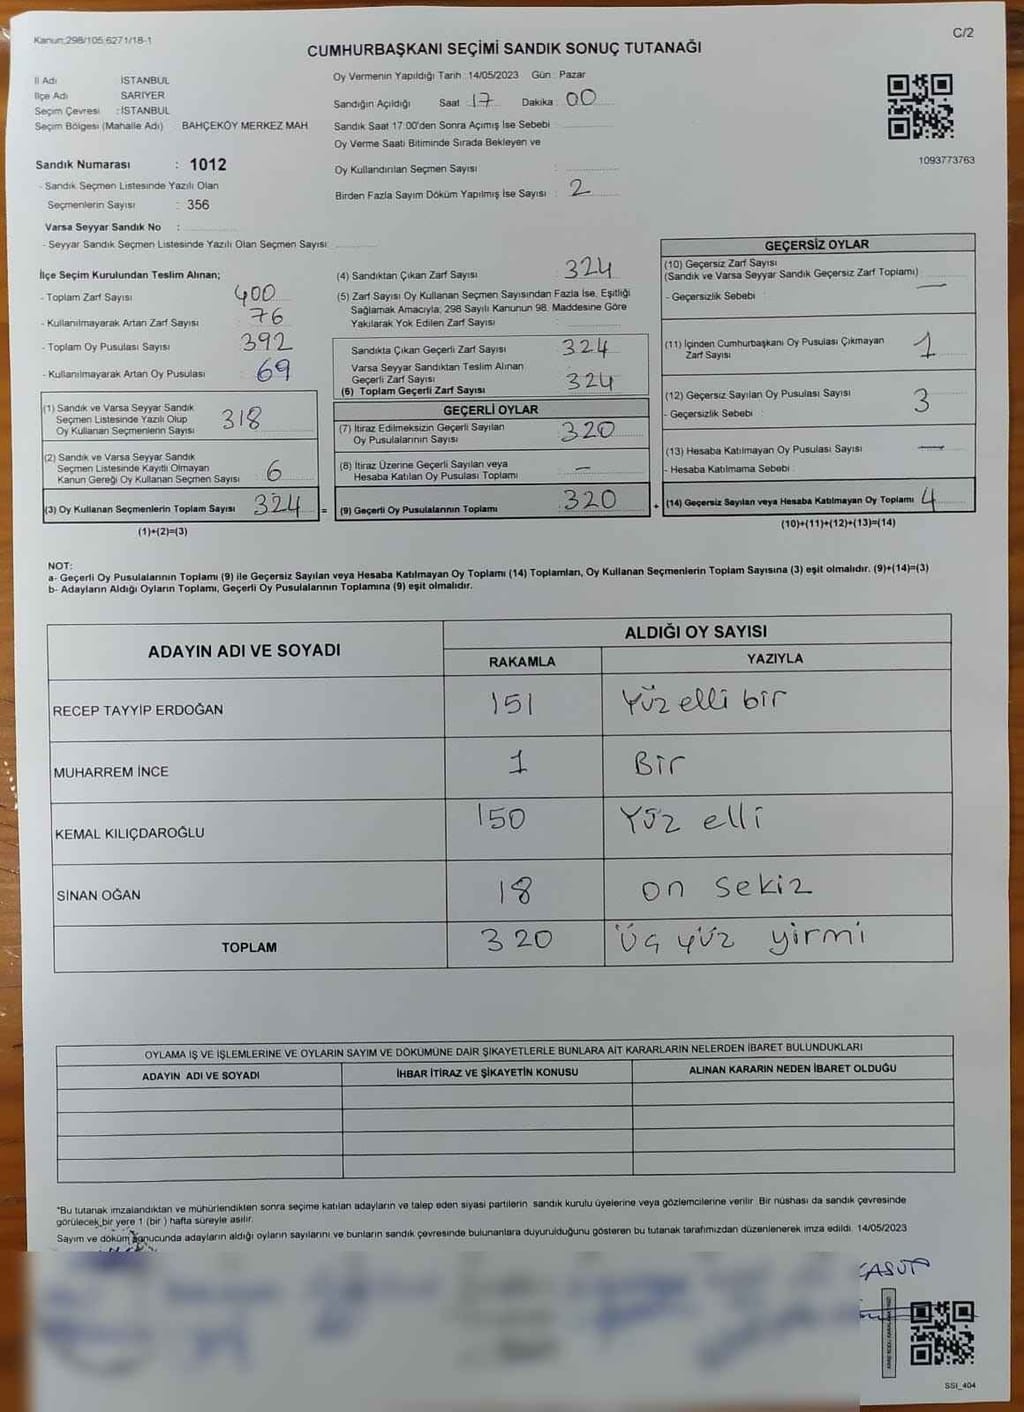 Kanun;298/105,6271/18-1
C/2
CUMHURBAŞKANI SEÇİMİ SANDIK SONUÇ TUTANAĞI
İl Adı İSTANBUL
İlçe Adı SARIYER
Seçim Çevresi : İSTANBUL
Seçim Bölgesi (Mahalle Adı) BAHÇEKÖY MERKEZ MAH
Sandık Numarası : 1012
- Sandık Seçmen Listesinde Yazılı Olan
Seçmenlerin Sayısı : 356
Varsa Seyyar Sandık No :
- Seyyar Sandık Seçmen Listesinde Yazılı Olan Seçmen Sayısı
Oy Vermenin Yapıldığı Tarih : 14/05/2023 Gün : Pazar
Sandığın Açıldığı Saat : 17 Dakika : 00
Sandık Saat 17:00'den Sonra Açımış İse Sebebi
Oy Verme Saati Bitiminde Sırada Bekleyen ve
Oy Kullandırılan Seçmen Sayısı :
Birden Fazla Sayım Döküm Yapılmış İse Sayısı : 2
1093773763
İlçe Seçim Kurulundan Teslim Alınan;
- Toplam Zarf Sayısı 400
- Kullanılmayarak Artan Zarf Sayısı 76
- Toplam Oy Pusulası Sayısı 392
- Kullanılmayarak Artan Oy Pusulası 69
(1) Sandık ve Varsa Seyyar Sandık
Seçmen Listesinde Yazılı Olup
Oy Kullanan Seçmenlerin Sayısı 318
(2) Sandık ve Varsa Seyyar Sandık
Seçmen Listesinde Kayıtlı Olmayan
Kanun Gereği Oy Kullanan Seçmen Sayısı 6
(3) Oy Kullanan Seçmenlerin Toplam Sayısı 324 =
(1)+(2)=(3)
(4) Sandıktan Çıkan Zarf Sayısı 324
(5) Zarf Sayısı Oy Kullanan Seçmen Sayısından Fazla İse, Eşitliği
Sağlamak Amacıyla, 298 Sayılı Kanunun 98. Maddesine Göre
Yakılarak Yok Edilen Zarf Sayısı
Sandıkta Çıkan Geçerli Zarf Sayısı 324
Varsa Seyyar Sandıktan Teslim Alınan
Geçerli Zarf Sayısı
(6) Toplam Geçerli Zarf Sayısı 324
GEÇERLİ OYLAR
(7) İtiraz Edilmeksizin Geçerli Sayılan
Oy Pusulalarının Sayısı 320
(8) İtiraz Üzerine Geçerli Sayılan veya
Hesaba Katılan Oy Pusulası Toplamı –
(9) Geçerli Oy Pusulalarının Toplamı 320 +
GEÇERSİZ OYLAR
(10) Geçersiz Zarf Sayısı
(Sandık ve Varsa Seyyar Sandık Geçersiz Zarf Toplamı) —
- Geçersizlik Sebebi :
(11) İçinden Cumhurbaşkanı Oy Pusulası Çıkmayan
Zarf Sayısı 1
(12) Geçersiz Sayılan Oy Pusulası Sayısı 3
- Geçersizlik Sebebi :
(13) Hesaba Katılmayan Oy Pusulası Sayısı —
- Hesaba Katılmama Sebebi
(14) Geçersiz Sayılan veya Hesaba Katılmayan Oy Toplamı 4
(10)+(11)+(12)+(13)=(14)
NOT:
a- Geçerli Oy Pusulalarının Toplamı (9) ile Geçersiz Sayılan veya Hesaba Katılmayan Oy Toplamı (14) Toplamları, Oy Kullanan Seçmenlerin Toplam Sayısına (3) eşit olmalıdır. (9)+(14)=(3)
b- Adayların Aldığı Oyların Toplamı, Geçerli Oy Pusulalarının Toplamına (9) eşit olmalıdır.
ADAYIN ADI VE SOYADI ALDIĞI OY SAYISI
RAKAMLA YAZIYLA
RECEP TAYYİP ERDOĞAN 151 Yüz elli bir
MUHARREM İNCE 1 Bir
KEMAL KILIÇDAROĞLU 150 Yüz elli
SİNAN OĞAN 18 on sekiz
TOPLAM 320 üç yüz yirmi
OYLAMA İŞ VE İŞLEMLERİNE VE OYLARIN SAYIM VE DÖKÜMÜNE DAİR ŞİKAYETLERLE BUNLARA AİT KARARLARIN NELERDEN İBARET BULUNDUKLARI
ADAYIN ADI VE SOYADI İHBAR İTİRAZ VE ŞİKAYETİN KONUSU ALINAN KARARIN NEDEN İBARET OLDUĞU
*Bu tutanak imzalandıktan ve mühürlendikten sonra seçime katılan adayların ve talep eden siyasi partilerin sandık kurulu üyelerine veya gözlemcilerine verilir. Bir nüshası da sandık çevresinde
görülecek bir yere 1 (bir ) hafta süreyle asılır.
Sayım ve döküm sonucunda adayların aldığı oyların sayılarını ve bunların sandık çevresinde bulunanlara duyurulduğunu gösteren bu tutanak tarafımızdan düzenlenerek imza edildi. 14/05/2023
SSI_404